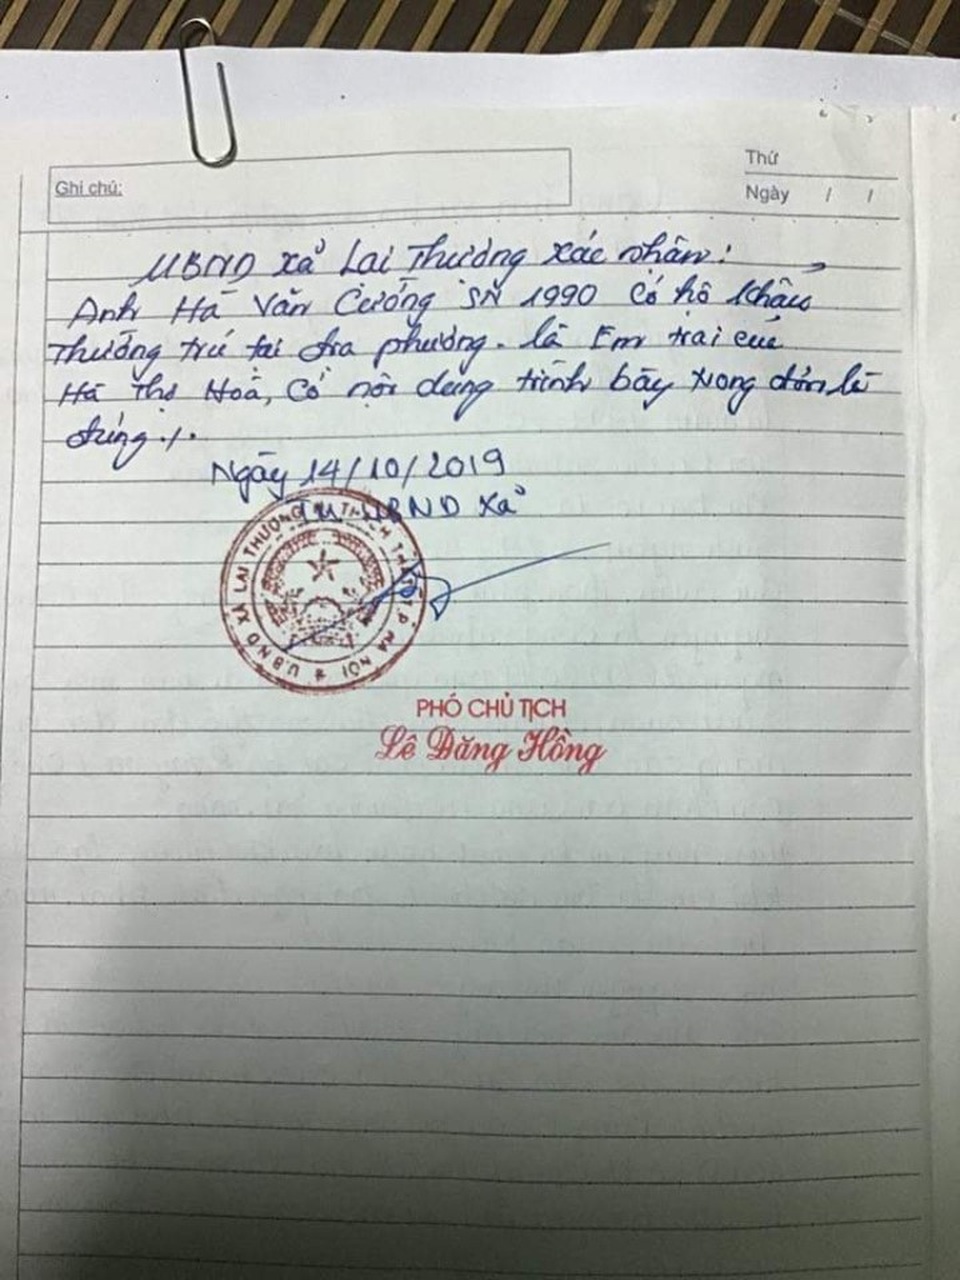 Ghi chú:
Thứ
Ngày / /
UBND xã Lại Thượng xác nhận:
Anh Hà Văn Cường SN 1990 có hộ khẩu
thường trú tại địa phương. là Em trai của
Hà Thị Hoà, Có nội dung trình bày trong đơn là
đúng./.
Ngày 14/10/2019
TM UBND xã
U.B.N.D XÃ LẠI THƯỢNG H. THẠCH THẤT T.P HÀ NỘI
PHÓ CHỦ TỊCH
Lê Đăng Hồng